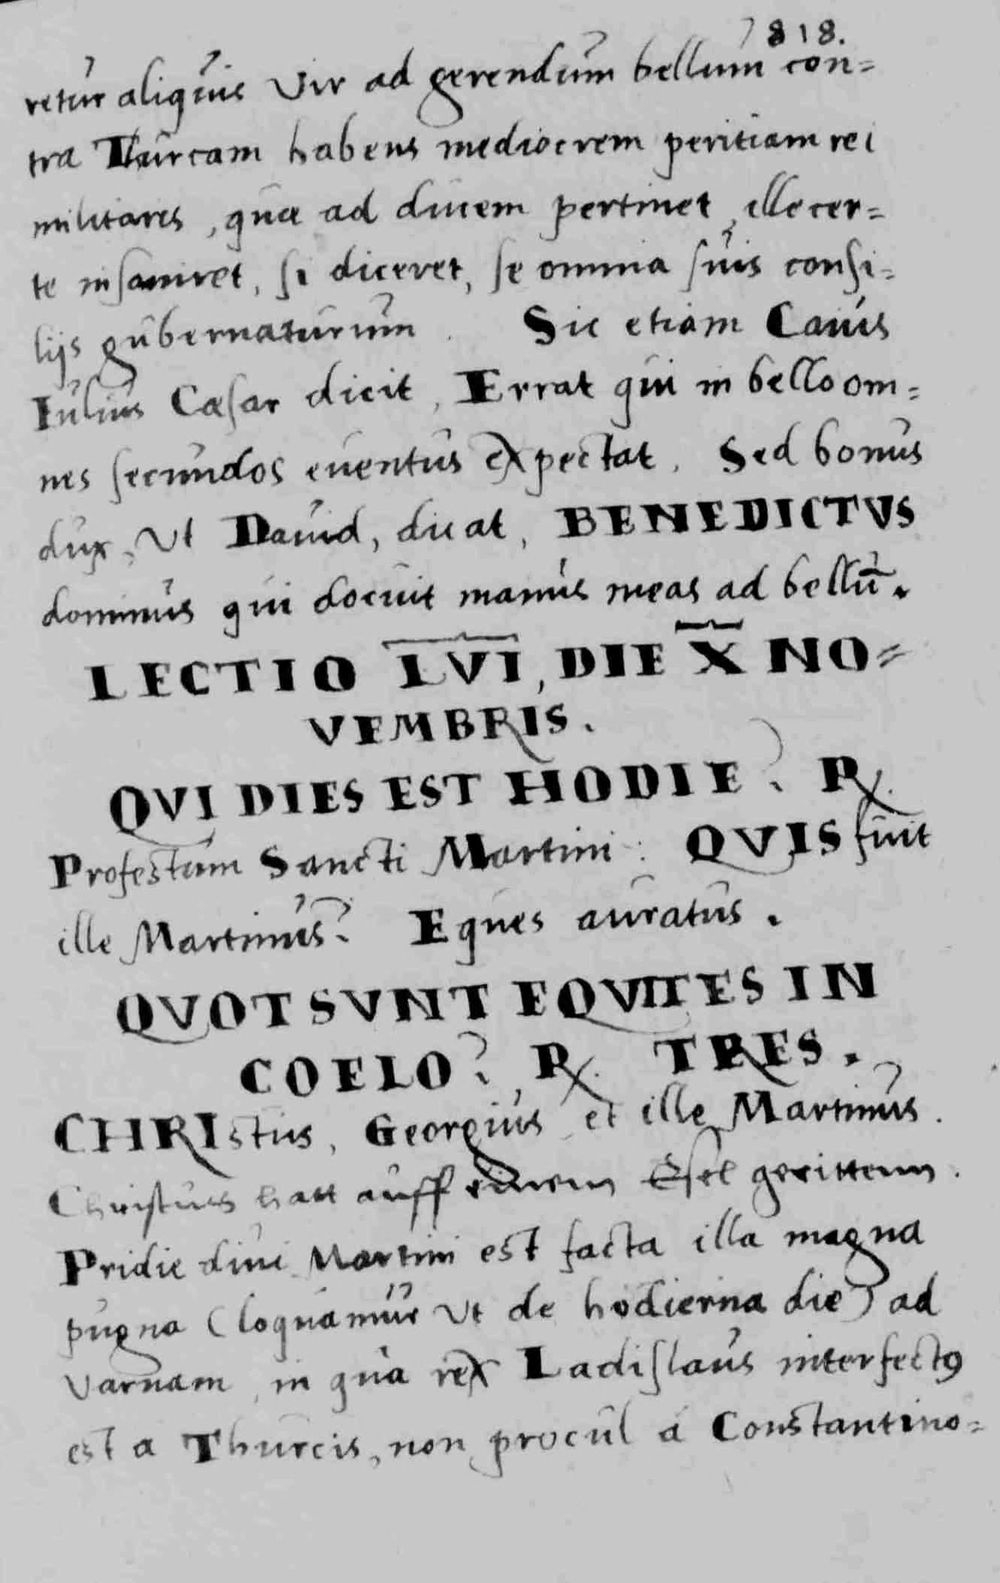 818.
retur aliquis Vir ad gerendum bellum con=
tra Thurcam habens mediocrem peritiam rei
militaris, quæ ad ducem pertinet, ille cer=
te insaniret, si diceret, se omnia suis consi=
lijs gubernaturum. Sic etiam Caius
Iulius Cæsar dicit, Errat qui in bello om=
nes secundos euentus expectat. Sed bonus
dux, Ut Dauid, dicat, BENEDICTVS
dominus qui docuit manus meas ad bellū.
LECTIO LVI, DIE X NO=
VEMBRIS.
QVI DIES EST HODIE? R.
Profestum Sancti Martini: QVIS fuit
ille Martinus? Eques auratus.
QVOT SVNT EQVITES IN
COELO? R. TRES.
CHRIstus, Georgius et ille Martinus.
Christus hatt auff einem Esel gerittenn.
Pridie diui Martini est facta illa magna
pugna (loquamur Ut de hodierna die) ad
Varnam, in qua rex Ladislaus interfectꝰ
est a Thurcis, non procul á Constantino=